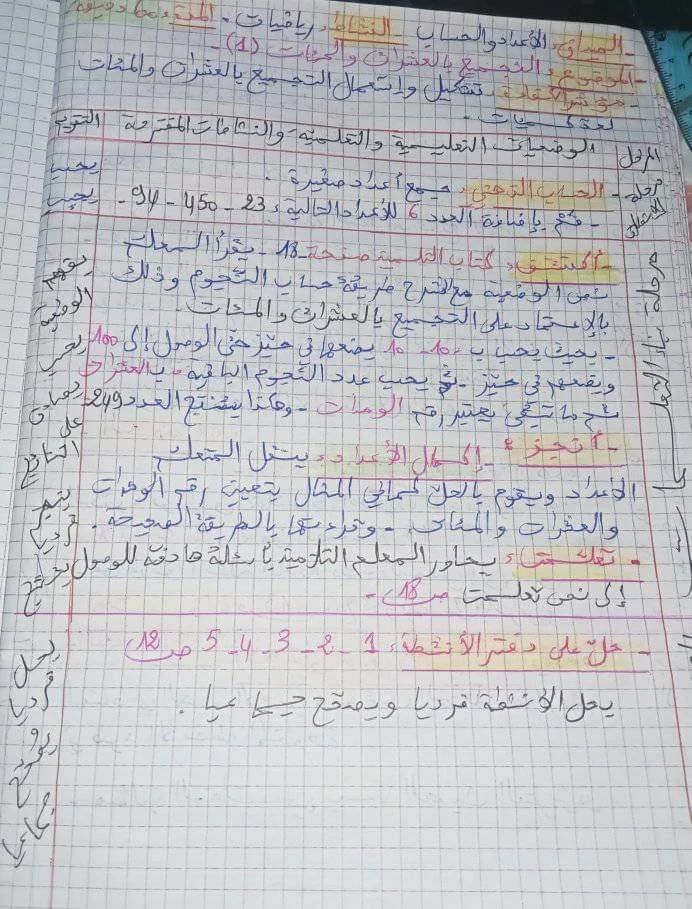 الميدان: الأعداد والحساب - النشاط: رياضيات - المدة: 60 دقيقة
- الموضوع: التجميع بالعشرات والمئات (1) -
- مؤشر الكفاءة: تشكيل وإستعمال التجميع بالعشرات والمئات
لعد كميات -
المراحل
الوضعيات التعليمية والتعلمية والنشاطات المقترحة
التقويم
مرحلة
- الحساب الذهني: جمع أعداد صغيرة .
يجيب
- قم بإضافة العدد 6 للأعداد التالية: 23 - 450 - 94 -
يجيب
مرحلة بناء
- أكتشف: كتاب التلميذ صفحة 18 - يقرأ المعلم
يفهم
نص الوضعية مع شرح طريقة حساب النجوم وذلك
الوضعية
بالإعتماد على التجميع بالعشرات والمئات -
- بحيث يحسب ب 10 - 10 يضعها في حيز حتى الوصول إلى 100
ويضعهم في حيز - ثم يحسب عدد النجوم الباقية ب العشرات
ثم ما تبقى يعتبر رقم الوحدات - وهكذا يستنتج العدد 249
على
- أنجز: - إكمال الأعداد: ينقل المتعلم
النتائج
الأعداد ويقوم بالحل كما في المثال بتعيين رقم الوحدات
ينجز
والعشرات والمئات - وقراءتها بالطريقة الصحيحة .
فرديا
- تعلمت: يحاور المعلم التلاميذ بأسئلة هادفة للوصول
إلى نص تعلمت ص 18 -
- حل على دفتر الأنشطة: 1 - 2 - 3 - 4 - 5 ص 12
يحل
يحل الأنشطة فرديا ويصحح جماعيا .
فرديا
جماعيا